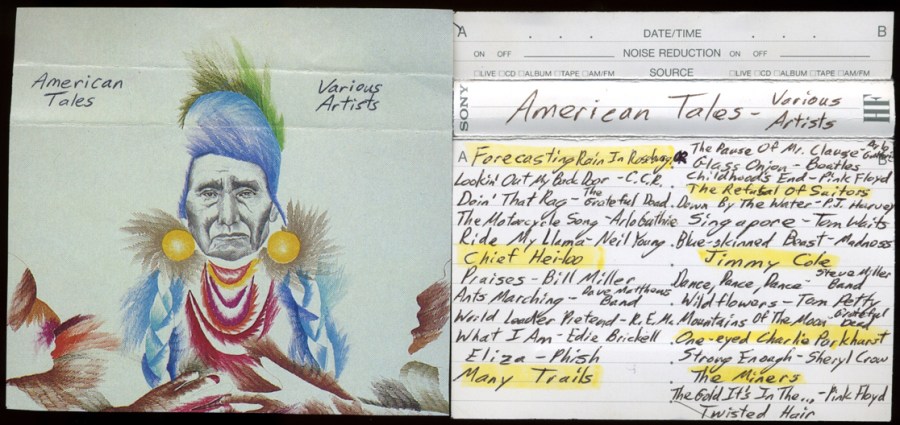 American
Tales
Various
Artists
A . . . DATE/TIME . . . B
ON OFF NOISE REDUCTION ON OFF
□LIVE □CD □ALBUM □TAPE □AM/FM SOURCE □LIVE □CD □ALBUM □TAPE □AM/FM
SONY
American Tales - Various
Artists
HF
A Forecasting Rain In Roseburg, OR
Lookin' Out My Back Door - C.C.R.
Doin' That Rag - The Grateful Dead
The Motorcycle Song - Arlo Guthrie
Ride My Llama - Neil Young
Chief Hei-loo
Praises - Bill Miller
Ants Marching - Dave Matthews Band
World Leader Pretend - R.E.M.
What I Am - Edie Brickell
Eliza - Phish
Many Trails
The Pause Of Mr. Clause - Arlo Guthrie
Glass Onion - Beatles
Childhood's End - Pink Floyd
The Refusal Of Suitors
Down By The Water - P.J. Harvey
Singapore - Tom Waits
Blue-skinned Beast - Madness
Jimmy Coke
Dance, Dance, Dance - Steve Miller Band
Wildflowers - Tom Petty
Mountains Of The Moon - Grateful Dead
One-eyed Charlie Parkhurst
Strong Enough - Sheryl Crow
The Miners
The Gold It's In The... - Pink Floyd
Twisted Hair